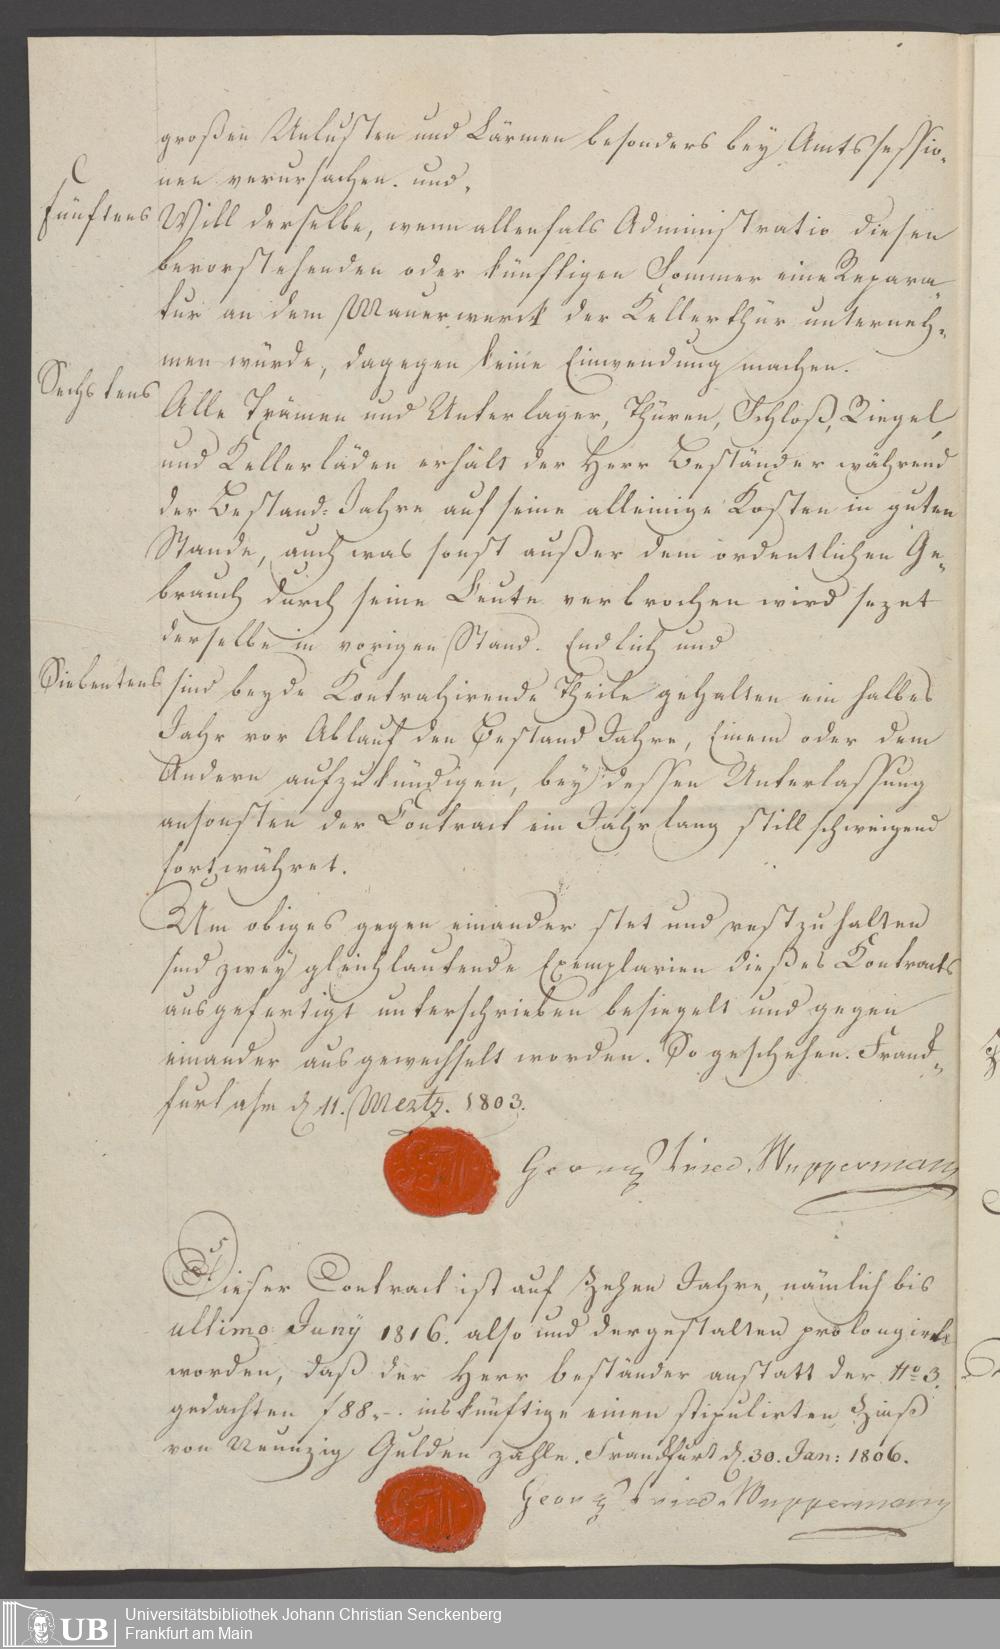 großen Unlusten und Lärmen besonders bey Amtssessio-
nen verursachen. und,
Fünftens Will derselbe, wenn allenfals Administratio diesen
bevorstehenden oder künftigen Sommer eine Repara
tur an dem Mauerwerck der Kellerthür unterneh-
men würde, dagegen keine Einwendung machen.
Sechstens Alle Trämen und Unterlager, Thüren, Schloß, Riegel,
und Kellerläden erhält der Herr Beständer während
der Bestand-Jahre auf seine alleinige Kosten in guten
Stande, auch was sonst außer dem ordentlichen Ge-
brauch durch seine Leute verbrochen wird sezet
derselbe in vorigen Stand. Endlich und
Siebentens sind beyde Kontrahirende Theile gehalten ein halbes
Jahr vor Ablauf den Bestand Jahre, Einem oder dem
Andern aufzukündigen, bey dessen Unterlassung
ansonsten der Contract ein Jahr lang stillschweigend
fortwähret.
Um obiges gegen einander stet und vest zu halten
sind zwey gleichlautende Exemplarien dießes Kontracts
ausgefertigt unterschrieben besiegelt und gegen
einander ausgewechselt worden. So geschehen. Franck-
furt a/m d. 11. Mertz. 1803.
Georg Fried. Wuppermann
Dieser Contract ist auf Zehen Jahre, nämlich bis
ultimo Juny 1816. also und dergestalten prolongirt
worden, daß der Herr beständer anstatt der No. 3.
gedachten f 88.-. inskünftige einen stipulirten Zinß
von Neunzig Gulden zahle. Franckfurt d. 30. Jan: 1806.
Georg Fried. Wuppermann
UB
Universitätsbibliothek Johann Christian Senckenberg
Frankfurt am Main